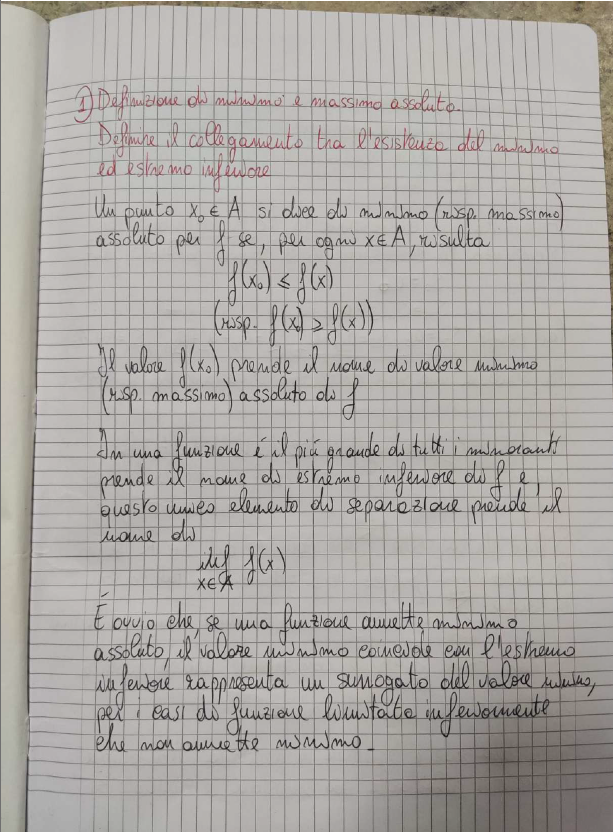 1) Definizione di minimo e massimo assoluto.
Definire il collegamento tra l'esistenza del minimo
ed estremo inferiore
Un punto x₀ ∈ A si dice di minimo (risp. massimo)
assoluto per f se, per ogni x ∈ A, risulta
f(x₀) ≤ f(x)
(risp. f(x₀) ≥ f(x))
Il valore f(x₀) prende il nome di valore minimo
(risp. massimo) assoluto di f
In una funzione è il più grande di tutti i minoranti
prende il nome di estremo inferiore di f e,
questo unico elemento di separazione prende il
nome di
inf f(x)
x∈A
È ovvio che, se una funzione amette minimo
assoluto, il valore minimo coincide con l'estremo
inferiore rappresenta un surrogato del valore minimo,
per i casi di funzione limitata inferiormente
che non amette minimo.